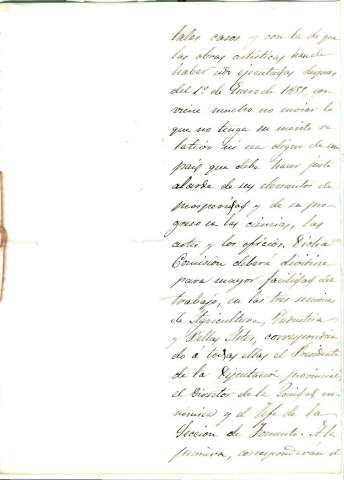 tales casos y con la de que
las obras artísticas han de
haber sido ejecutadas despues
del 1º de Enero de 1855, con
viene mucho no enviar lo
que no tenga un mérito re
lativo ni sea digno de un
pais que debe hacer justo
alarde de sus elementos de
prosperidad y de su pro
greso en las ciencias, las
artes y los oficios. Dicha
Comision deberá dividirse
para mayor facilidad del
trabajo, en las tres secciones
de Agricultura, Industria
y Bellas Artes, correspondien
do á todas ellas el Presidente
de la Diputacion provincial,
el Director de la Sociedad eco
nómica y el Gefe de la
Seccion de Fomento. A la
primera, corresponderán el